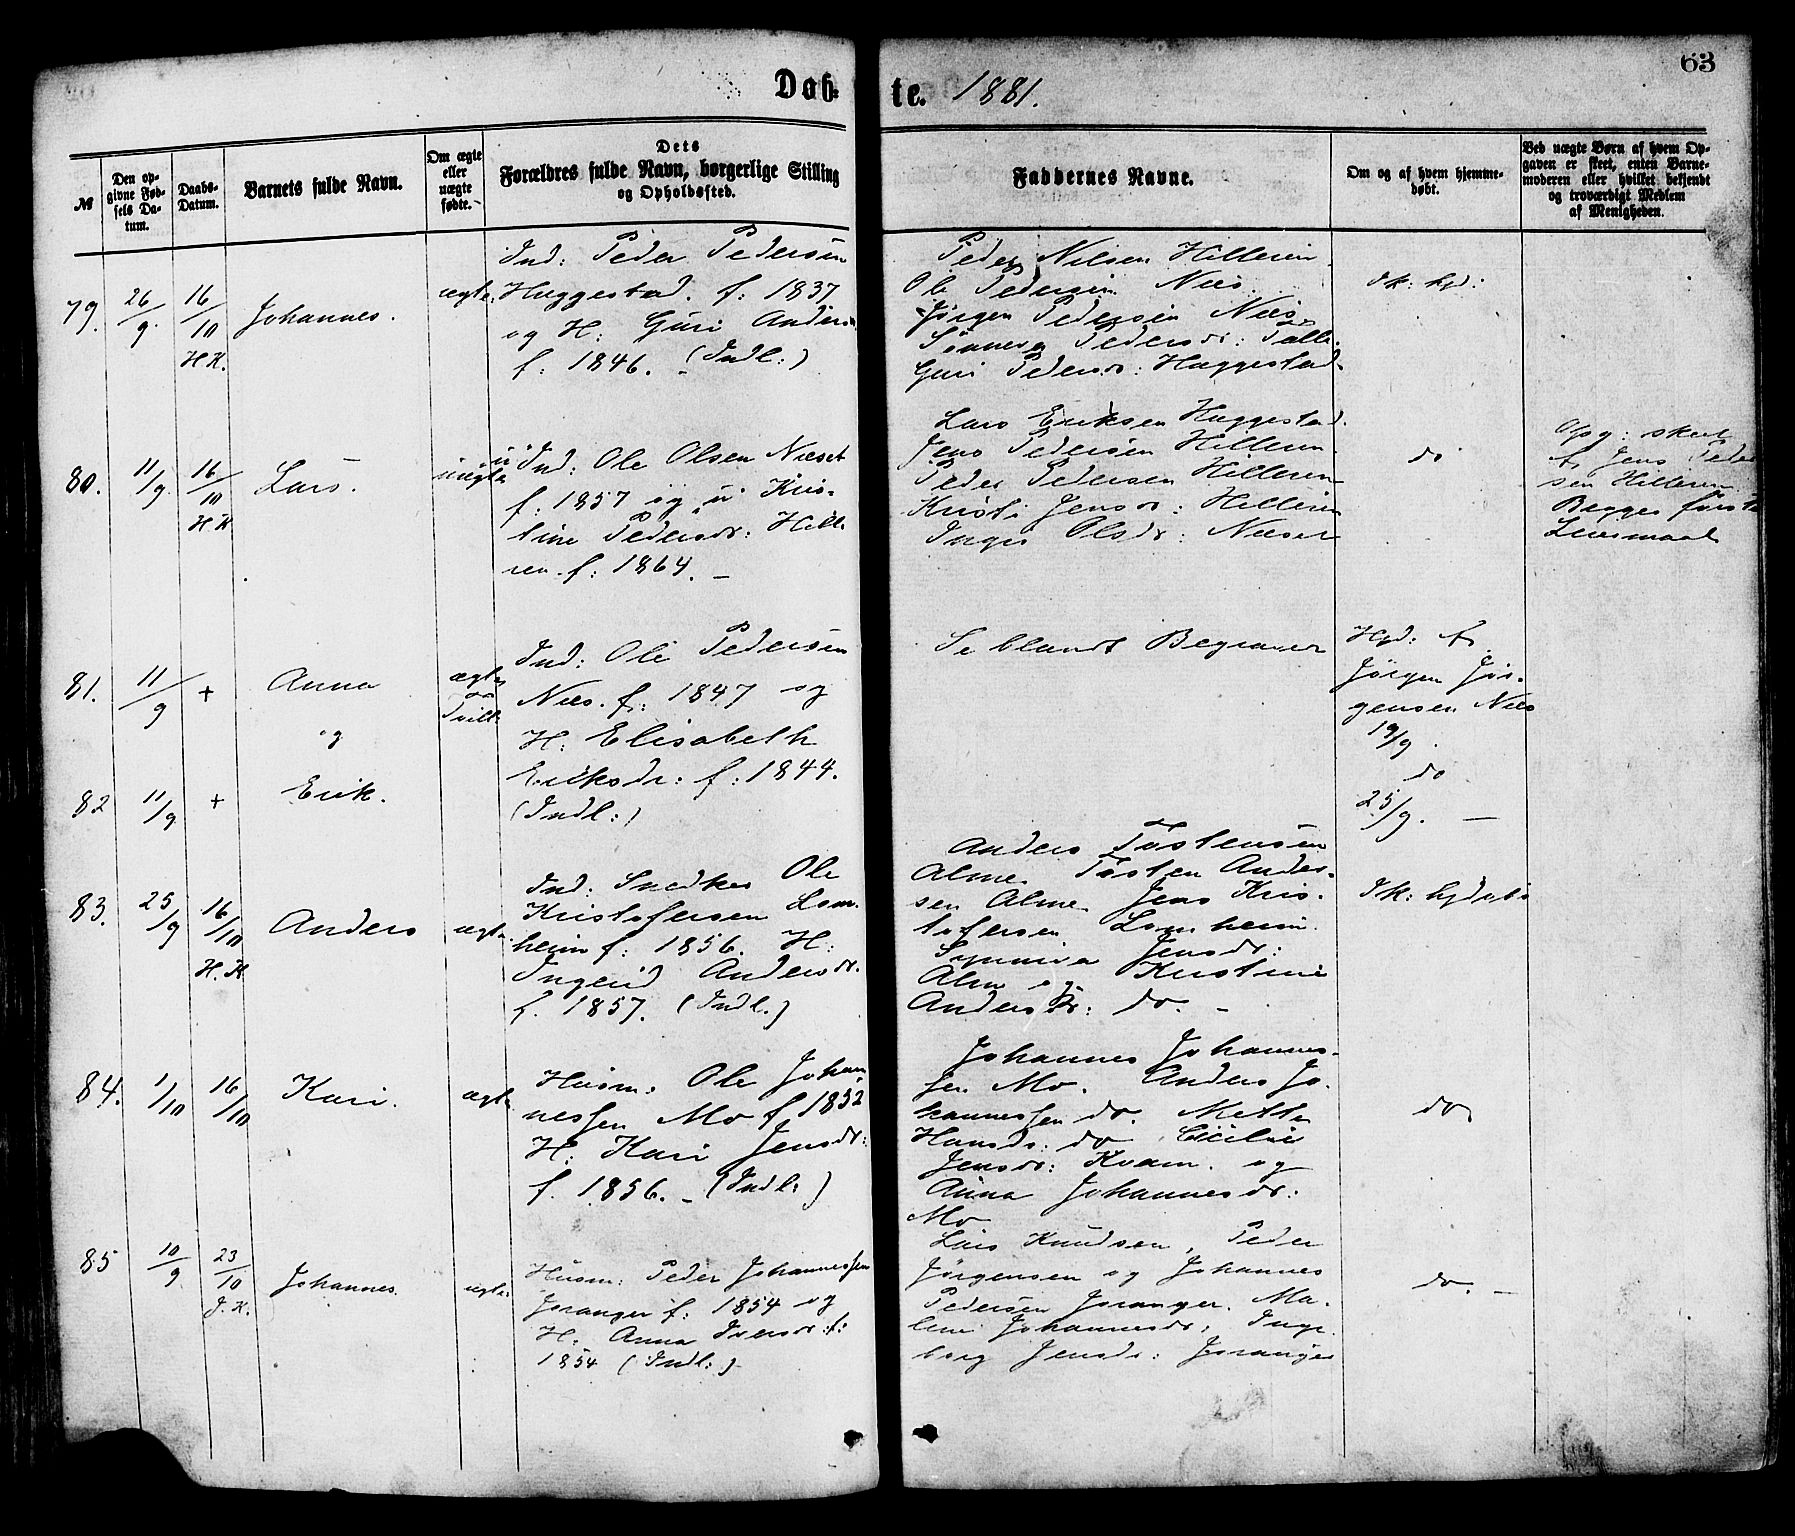 63
Døbte. 1881.
№
Den opgivne Fødsels Datum.
Daabs-Datum.
Barnets fulde Navn.
Om ægte eller uægte fødte.
Dets Forældres fulde Navn, borgerlige Stilling og Opholdssted.
Faddernes Navne.
Om og af hvem hjemmedøbt.
Ved uægte Børn af hvem Opgaven er skeet, enten Barnemoderen eller hvilket bekjendt og troværdigt Medlem af Menigheden.
79. 26/9. 16/10 H K. Johannes. ægte
Ind: Peder Pedersen
Haggestad. f: 1837
og H: Guri Anders
f: 1846. (Indl:)
Peder Nilsen Hilleren
Ole Pedersen Næs
Jørgen Pedersen Næs
Synneva Pedersdr:
Guri Pedersdr: Haggestad
Ik: hjd:
80. 11/9. 16/10 H K Lars. uægte
Ind: Ole Olsen Næset
f: 1857 og u Kris-
tine Pedersdr: Hille
ren. f: 1864. –
Lars Eriksen Haggestad.
Jens Pedersen Hilleren
Peder Pedersen Hilleren
Kristi Jensdr: Hilleren
Inger Olsdr: Næset
do
Opg: skeet
af Jens Peder
sen Hilleren
Begges første
Leiermaal
81. 11/9 + Anna ægte Tvill:
og
82 11/9 + Erik.
Ind: Ole Pedersen
Næs. f: 1847 og
H: Elisabeth
Eriksdr: f: 1844.
(Indl:)
Se blandt Begravne
Hjd: af
Jørgen Jør-
gensen Næs
19/9.
do
25/9. –
83. 25/9 16/10 H. K Anders ægte
Ind: Snedker Ole
Kristofersen Lom-
heim f: 1856. H:
Ingerid Andersdr.
f. 1857. (Indl.)
Anders Tostensen
Alme Tosten Ander-
sen Alme Jens Kris-
tofersen Lomheim.
Synneva Jensdr:
Alm og Kristine
Andersdr: do. –
Ik: hjdøbt
84. 1/10 16/10 Kari. ægte
Husm: Ole Johan
nessen Mo f. 1852
H: Kari Jensdr:
f. 1856. – (Indl:)
Johannes Johannes-
sen Mo. Anders Jo-
hannessen do. Mette
Hansdr: do Cecilie
Jensdr: Kvam. og
Anna Johannesdr:
Mo
do
85 10/9. 23/10 J. K. Johannes. ægte
Husm: Peder Johannessen
Joranger f. 1854 og
H. Anna Iversdr: f:
1854 (Indl:)
Lars Knudsen, Peder
Jørgensen og Johannes
Pedersen Joranger. Ma-
lene Johannesdr, Inge-
borg Jensdr: Joranger
do. –